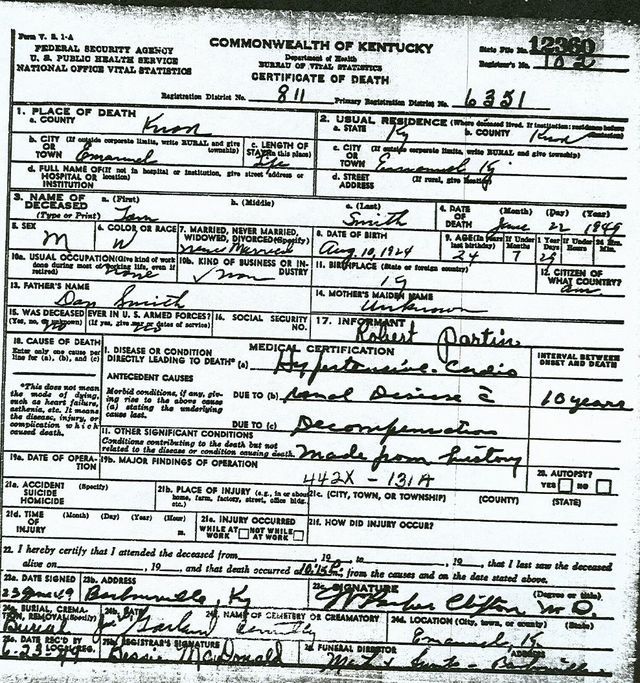 Form V. S. 1-A
FEDERAL SECURITY AGENCY
U. S. PUBLIC HEALTH SERVICE
NATIONAL OFFICE VITAL STATISTICS
COMMONWEALTH OF KENTUCKY
Department of Health
BUREAU OF VITAL STATISTICS
CERTIFICATE OF DEATH
State File No. 12360
Registrar's No. 102
Registration District No. 811 Primary Registration District No. 6351
1. PLACE OF DEATH
a. COUNTY Knox
b. CITY (If outside corporate limits, write RURAL and give township)
OR TOWN Emanuel
c. LENGTH OF STAY (in this place) Life
d. FULL NAME OF (If not in hospital or institution, give street address or location)
HOSPITAL OR INSTITUTION
2. USUAL RESIDENCE (Where deceased lived. If institution: residence before admission)
a. STATE Ky b. COUNTY Knox
c. CITY (If outside corporate limits, write RURAL and give township)
OR TOWN Emanuel Ky
d. STREET ADDRESS (If rural, give location)
3. NAME OF DECEASED (Type or Print)
a. (First) b. (Middle) c. (Last) Smith
4. DATE OF DEATH (Month) (Day) (Year) June 22 1949
5. SEX M
6. COLOR OR RACE W
7. MARRIED, NEVER MARRIED, WIDOWED, DIVORCED (Specify) Never Married
8. DATE OF BIRTH Aug. 10, 1924
9. AGE (In years last birthday) 24 If Under 1 Year Months Days If Under 24 Hrs. Hours Min.
10a. USUAL OCCUPATION (Give kind of work done during most of working life, even if retired) None
10b. KIND OF BUSINESS OR INDUSTRY
11. BIRTHPLACE (State or foreign country) Ky
12. CITIZEN OF WHAT COUNTRY? Am
13. FATHER'S NAME Dan Smith
14. MOTHER'S MAIDEN NAME Unknown
15. WAS DECEASED EVER IN U. S. ARMED FORCES?
(Yes, no, or unknown) (If yes, give war or dates of service)
16. SOCIAL SECURITY NO.
17. INFORMANT Robert Partin
18. CAUSE OF DEATH
Enter only one cause per line for (a), (b), and (c)
*This does not mean the mode of dying, such as heart failure, asthenia, etc. It means the disease, injury, or complication which caused death.
MEDICAL CERTIFICATION
INTERVAL BETWEEN ONSET AND DEATH
I. DISEASE OR CONDITION DIRECTLY LEADING TO DEATH* (a) Hypertensive Cardio
ANTECEDENT CAUSES
Morbid conditions, if any, giving rise to the above cause (a) stating the underlying cause last.
DUE TO (b) renal Disease c̄ 10 years
DUE TO (c) Decompensation
II. OTHER SIGNIFICANT CONDITIONS
Conditions contributing to the death but not related to the disease or condition causing death. Made from history
19a. DATE OF OPERATION
19b. MAJOR FINDINGS OF OPERATION 442X - 131A
20. AUTOPSY? YES NO
21a. ACCIDENT SUICIDE HOMICIDE (Specify)
21b. PLACE OF INJURY (e.g., in or about home, farm, factory, street, office bldg. etc.)
21c. (CITY, TOWN, OR TOWNSHIP) (COUNTY) (STATE)
21d. TIME OF INJURY (Month) (Day) (Year) (Hour) m.
21e. INJURY OCCURRED WHILE AT WORK NOT WHILE AT WORK
21f. HOW DID INJURY OCCUR?
22. I hereby certify that I attended the deceased from , 19 to , 19 , that I last saw the deceased
alive on , 19 , and that death occurred at 10:15 P. m., from the causes and on the date stated above.
23a. DATE SIGNED
23b. ADDRESS Barbourville, Ky
23c. SIGNATURE Clifton M D. (Degree or title)
24a. BURIAL, CREMATION, REMOVAL (Specify) Burial
24b. DATE
24c. NAME OF CEMETERY OR CREMATORY
24d. LOCATION (City, town, or county) (State) Emanuel, K
25a. DATE REC'D BY LOCAL REG. 6-23-49
25b. REGISTRAR'S SIGNATURE Bessie McDonald
26. FUNERAL DIRECTOR ADDRESS